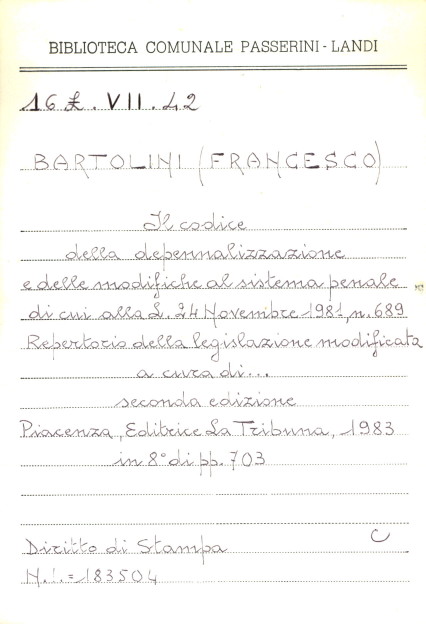 BIBLIOTECA COMUNALE PASSERINI - LANDI
16 Z. VII. 42
BARTOLINI (FRANCESCO)
Il codice
della depennalizzazione
e delle modifiche al sistema penale
di cui alla L. 24 Novembre 1981, n. 689
Repertorio della legislazione modificata
a cura di...
seconda edizione
Piacenza, Editrice La Tribuna, 1983
in 8° di pp. 703
C
Diritto di Stampa
N.i.=183504